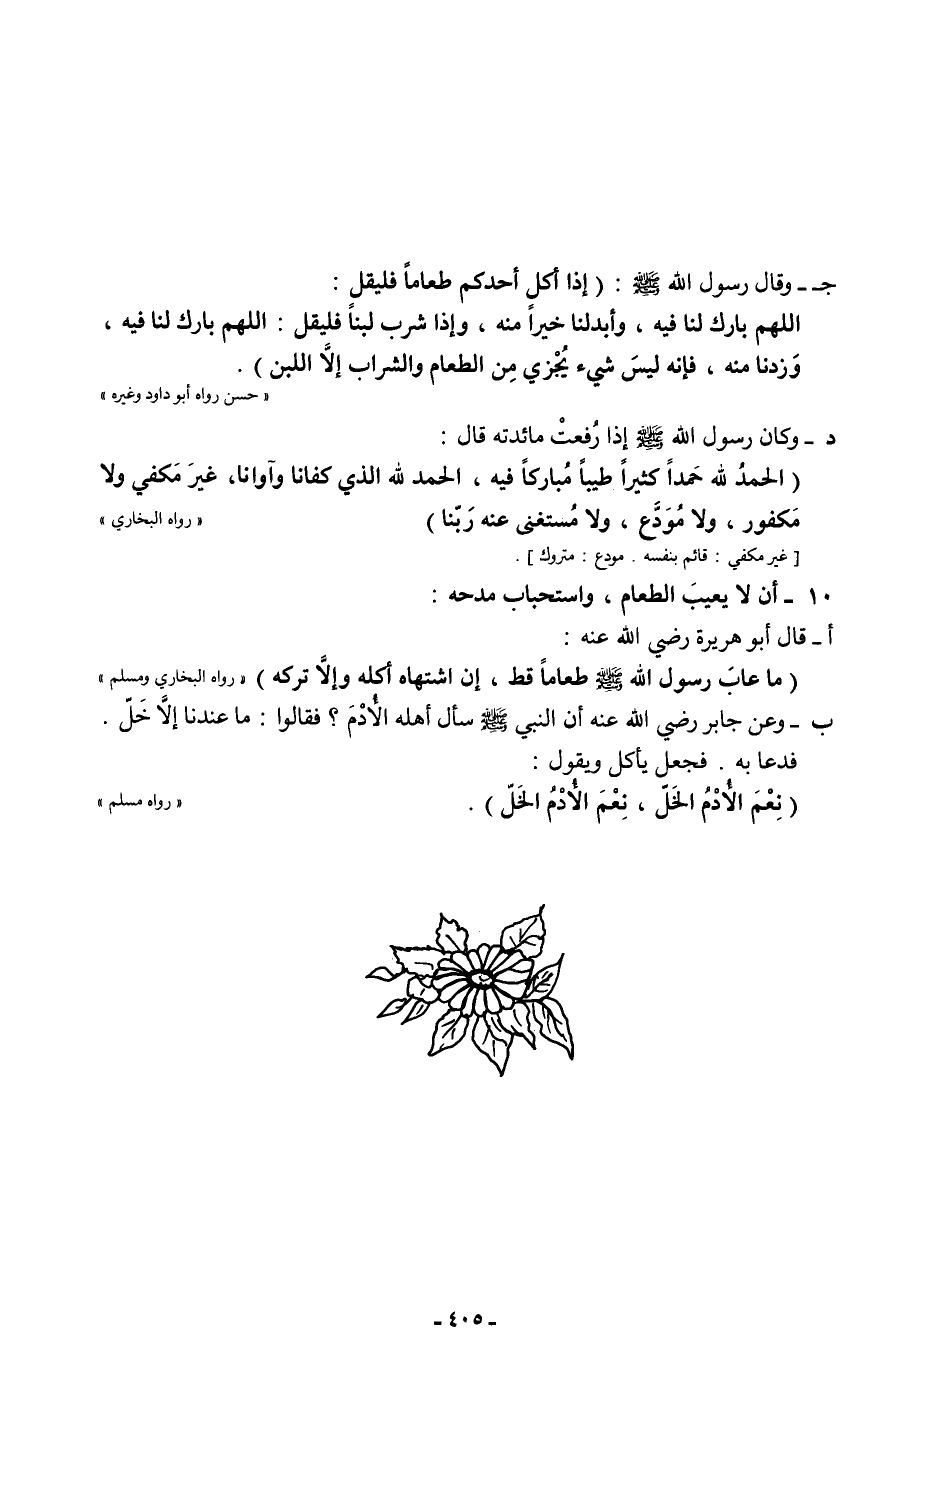 جـ ـ وقال رسول الله ﷺ : ( إذا أكل أحدكم طعاماً فليقل :
اللهم بارك لنا فيه ، وأبدلنا خيراً منه ، وإذا شرب لبناً فليقل : اللهم بارك لنا فيه ،
وَزدنا منه ، فإنه ليسَ شيء يُجْزي مِن الطعام والشراب إلَّا اللبن ) .
« حسن رواه أبو داود وغيره »
د ـ وكان رسول الله ﷺ إذا رُفعتْ مائدته قال :
( الحمدُ لله حَمداً كثيراً طيباً مُباركاً فيه ، الحمد لله الذي كفانا وآوانا، غيرَ مَكفي ولا
مَكفور ، ولا مُوَدَّع ، ولا مُستغنى عنه رَبّنا ) « رواه البخاري »
[ غير مكفي : قائم بنفسه . مودع : متروك ] .
١٠ ـ أن لا يعيبَ الطعام ، واستحباب مدحه :
أ ـ قال أبو هريرة رضي الله عنه :
( ما عابَ رسول الله ﷺ طعاماً قط ، إن اشتهاه أكله وإلَّا تركه ) « رواه البخاري ومسلم »
ب ـ وعن جابر رضي الله عنه أن النبي ﷺ سأل أهله الأُدْمَ ؟ فقالوا : ما عندنا إلَّا خَلّ .
فدعا به . فجعل يأكل ويقول :
( نِعْمَ الأُدْمُ الخَلّ ، نِعْمَ الأُدْمُ الخَلّ ) . « رواه مسلم »
ـ ٤٠٥ ـ